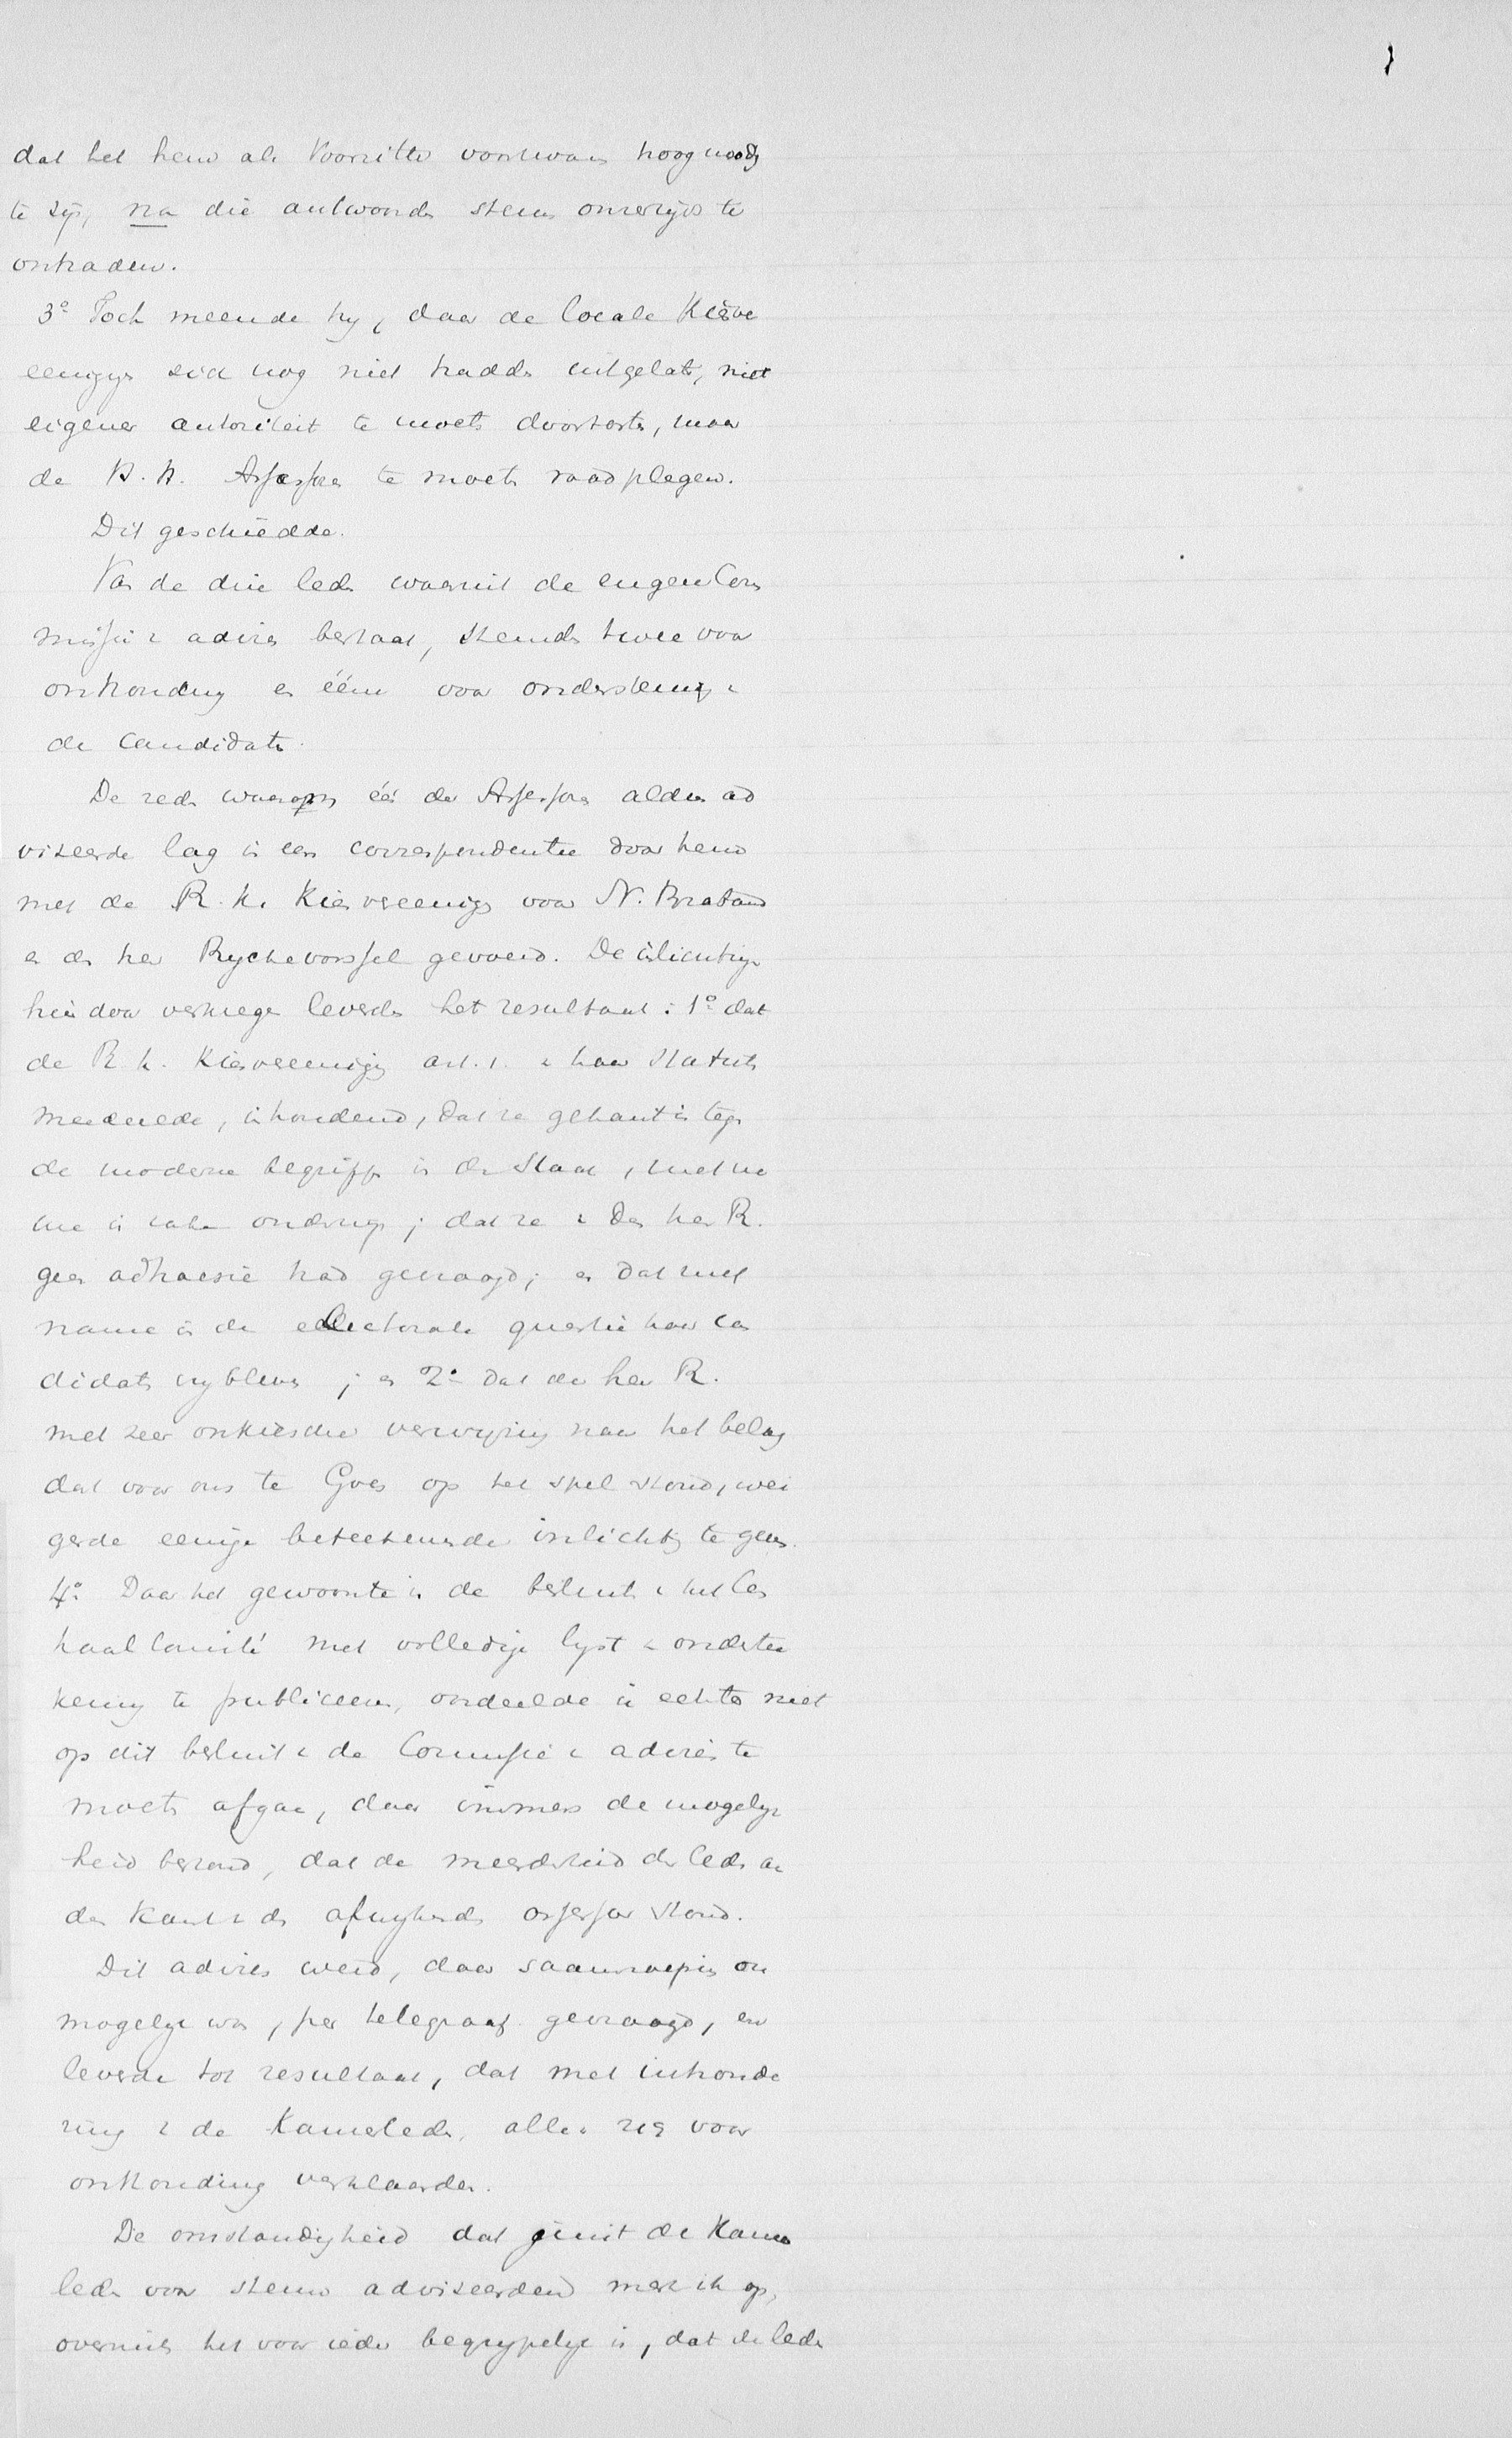 dat het hem als Voorzitter voorkwam hoog noodig
te zijn, na die antwoorden stem onzerzijds te
ontraden.
3o Toch meende hy, daar de locale Kiesve
eeniging zich nog niet hadde uitgelaten, niet
eigener autoriteit te moeten doortasten, maar
de H.H. Assessoren te moeten raadplegen.
Dit geschiedde.
Van de drie leden waaruit de engere Com
missie v advies bestaat, stemden twee voor
onthouding en één voor ondersteuning v
de candidaten.
De reden waarom één der Assessoren aldus ad
viseerde lag in een correspondentie door hem
met de R.K. Kiesvereeniging voor N. Braband
en den heer Ryckevorssel gevoerd. De inlichtingen
hierdoor verkregen leverden het resultaat: 1o dat
de R.K. Kiesvereeniging art. 1. v haar Statuten
meedeelde, inhoudend, dat ze gekant is tegen
de moderne begrippen in den Staat, met na
me in zake onderwijs; dat ze v den heer R.
geen adhaesie had gevraagd; en dat met
name in de electorale questie haar can
didaten vry bleven; en 2o dat de heer R.
met zeer onkiesche verwyzing naar het belang
dat voor ons te Goes op het spel stond, wei
gerde eenige beteekenende inlichting te geven.
4o Daar het gewoonte is de besluiten v het Cen
traal Comité met volledige lyst v onderte
kening te publiceeren, oordeelde ik echter niet
op dit besluit v de Commissie v advies te
moeten afgaan, daar immers de mogelyk
heid bestond, dat de meerderheid der leden aan
den kant v den afwykenden assessor stond.
Dit advies werd, daar saamroeping on
mogelyk was, per telegraaf gevraagd, en
leverde tot resultaat, dat met uitzonde
ring v de Kamerleden, allen zich voor
onthouding verklaarden.
De omstandigheid dat juist de Kamer
leden voor stemmen adviseerden merk ik op,
overmits het voor ieder begrypelyk is, dat de leden